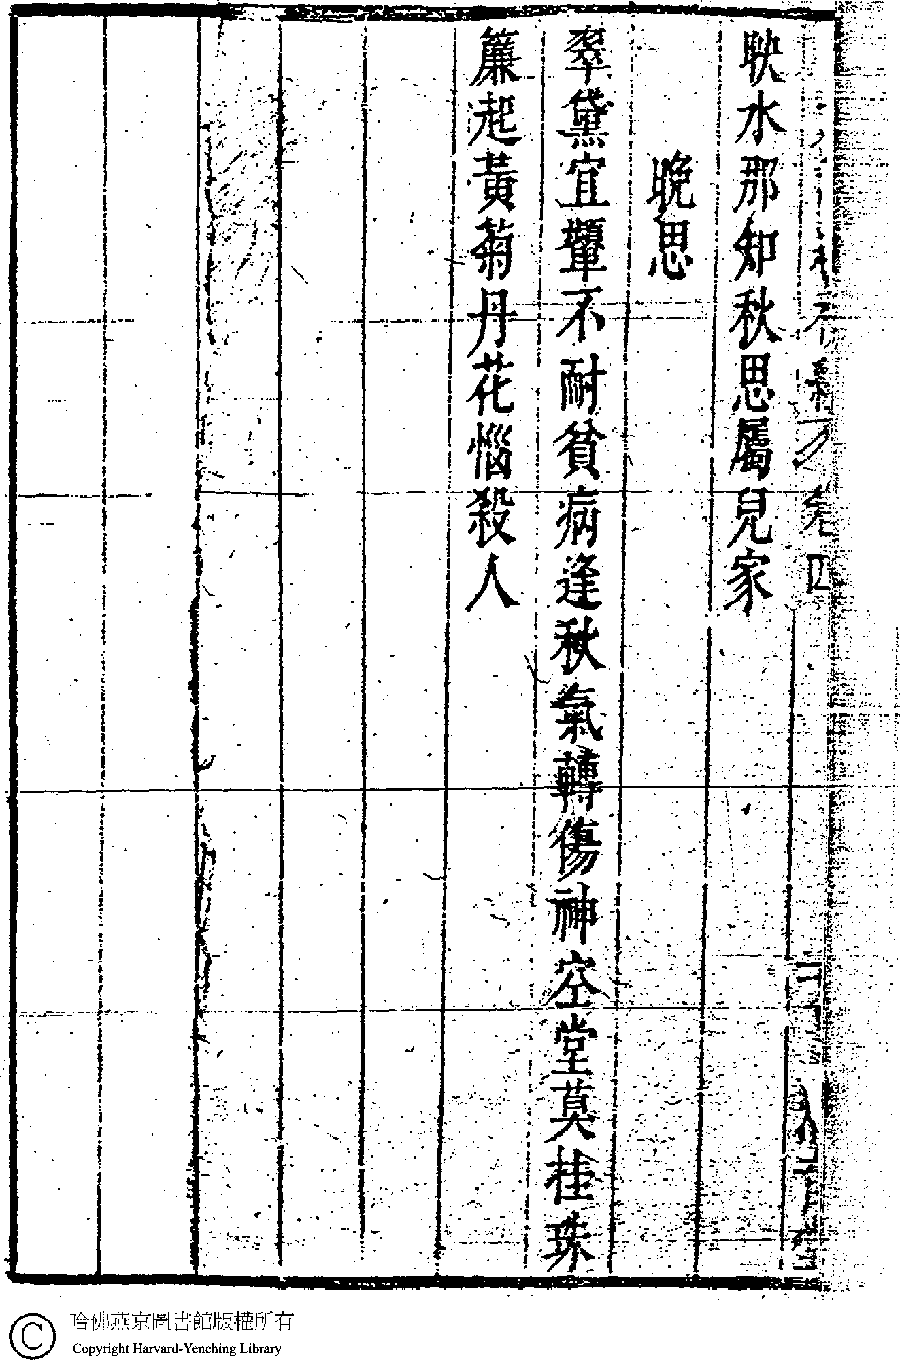 映水那知秋思屬兒家
晚思
翠黛宜顰不耐貧病逢秋氣轉傷神空堂莫桂珠
簾起黃菊丹花惱殺人
卷四
哈佛燕京圖書館版權所有
Copyright Harvard-Yenching Library